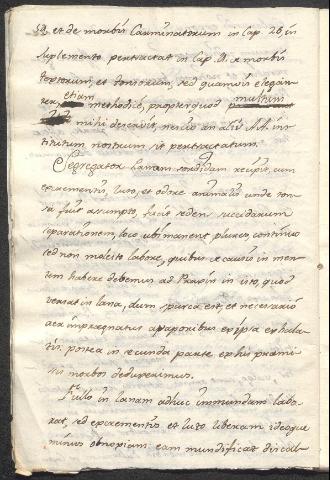 et de morbis Carminatorum in Cap. 26, in
suplemento pertractat in Cap. a morbis
et tonsorum, sed quamvis elegan
ter, etiam methodice, propter quod multum
mihi deservit, nescio an alii A.A. ins
titutum nostrum sit pertractatum.
Segregator lanam sordidam recipit, cum
excrementis, luto, et odore animalis unde ton
sa fuit assumpto, facit sedens succidarum
separationem, loco ubi manent plures, continuo
sed non molesto labore, quibus ex causis in men
tem habere debemus ad Praxin in isto, quod
versat in lana, dum spurca est, et necessario
aer impregnatus a vaporibus ex ipsa exhala
tis. postea in secunda parte ex his præmi
ssis morbos deduceramus.
Fullo in lanam adhuc immundam labo
rat, sed excrementis et luto liberam ideoque
minus obnoxiam: eam mundificat discal-